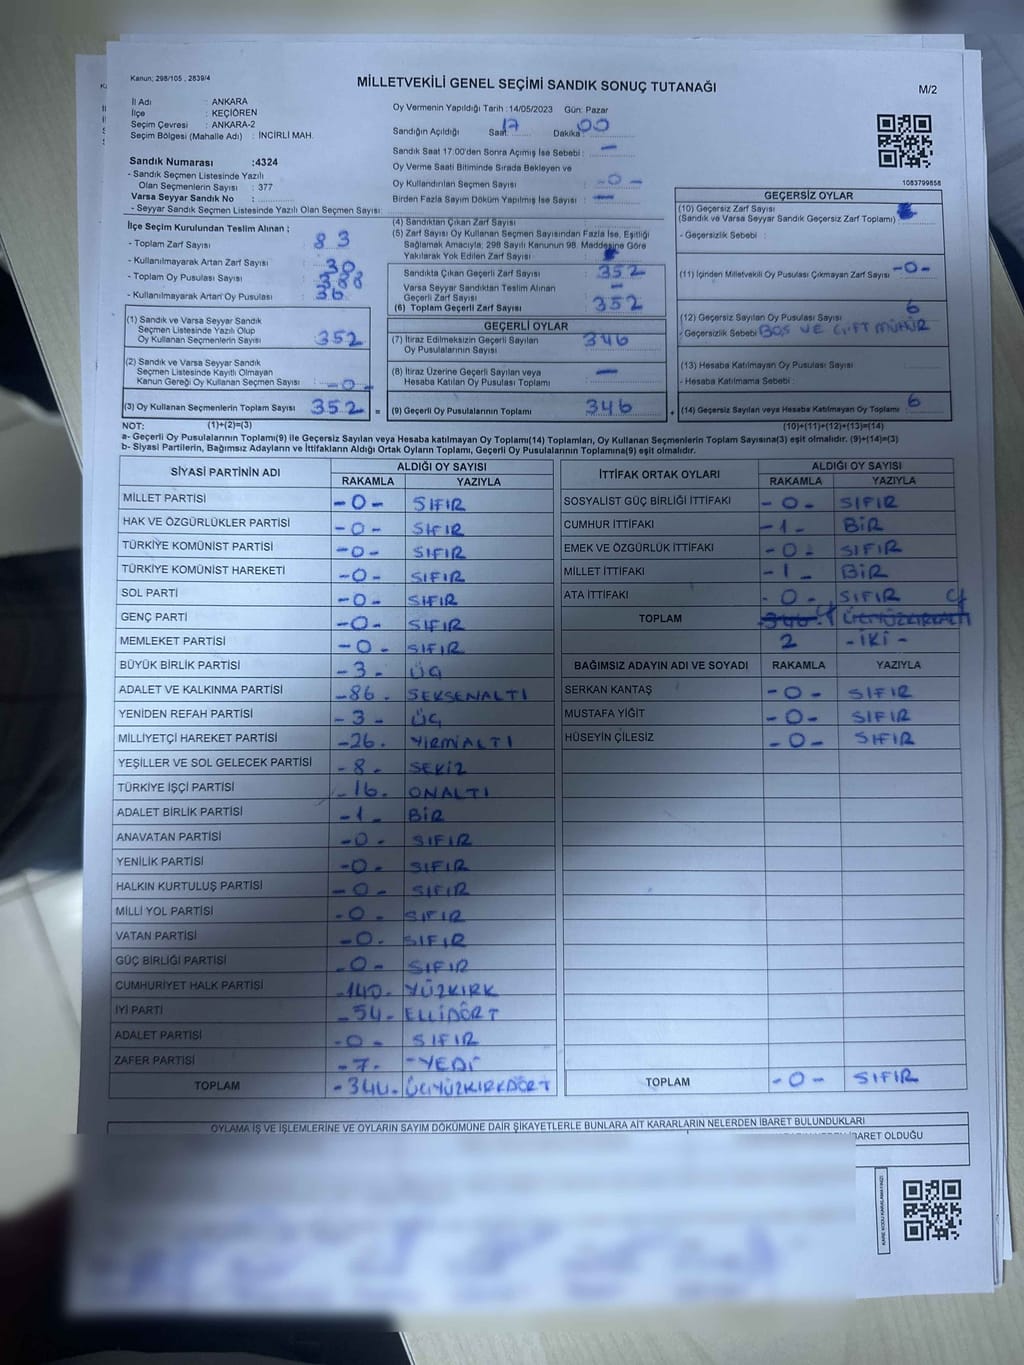 Kanun; 298/105 , 2839/4
MİLLETVEKİLİ GENEL SEÇİMİ SANDIK SONUÇ TUTANAĞI
M/2
İl Adı : ANKARA
İlçe : KEÇİÖREN
Seçim Çevresi : ANKARA-2
Seçim Bölgesi (Mahalle Adı) : İNCİRLİ MAH.
Sandık Numarası :4324
- Sandık Seçmen Listesinde Yazılı
Olan Seçmenlerin Sayısı : 377
Varsa Seyyar Sandık No :
- Seyyar Sandık Seçmen Listesinde Yazılı Olan Seçmen Sayısı:
Oy Vermenin Yapıldığı Tarih :14/05/2023 Gün: Pazar
Sandığın Açıldığı Saat: 17 Dakika 00
Sandık Saat 17.00'den Sonra Açılmış İse Sebebi : -
Oy Verme Saati Bitiminde Sırada Bekleyen ve
Oy Kullandırılan Seçmen Sayısı : -0-
Birden Fazla Sayım Döküm Yapılmış İse Sayısı : -
1083799858
İlçe Seçim Kurulundan Teslim Alınan ;
- Toplam Zarf Sayısı : 83
- Kullanılmayarak Artan Zarf Sayısı : 30
- Toplam Oy Pusulası Sayısı : 388
- Kullanılmayarak Artan Oy Pusulası : 36
(1) Sandık ve Varsa Seyyar Sandık
Seçmen Listesinde Yazılı Olup
Oy Kullanan Seçmenlerin Sayısı : 352
(2) Sandık ve Varsa Seyyar Sandık
Seçmen Listesinde Kayıtlı Olmayan
Kanun Gereği Oy Kullanan Seçmen Sayısı : -0-
(3) Oy Kullanan Seçmenlerin Toplam Sayısı : 352 =
(4) Sandıktan Çıkan Zarf Sayısı
(5) Zarf Sayısı Oy Kullanan Seçmen Sayısından Fazla İse, Eşitliği
Sağlamak Amacıyla; 298 Sayılı Kanunun 98. Maddesine Göre
Yakılarak Yok Edilen Zarf Sayısı :
Sandıkta Çıkan Geçerli Zarf Sayısı : 352
Varsa Seyyar Sandıktan Teslim Alınan
Geçerli Zarf Sayısı : -
(6) Toplam Geçerli Zarf Sayısı : 352
GEÇERLİ OYLAR
(7) İtiraz Edilmeksizin Geçerli Sayılan
Oy Pusulalarının Sayısı : 346
(8) İtiraz Üzerine Geçerli Sayılan veya
Hesaba Katılan Oy Pusulası Toplamı : -
(9) Geçerli Oy Pusulalarının Toplamı : 346 +
GEÇERSİZ OYLAR
(10) Geçersiz Zarf Sayısı
(Sandık ve Varsa Seyyar Sandık Geçersiz Zarf Toplamı) :
- Geçersizlik Sebebi :
(11) İçinden Milletvekili Oy Pusulası Çıkmayan Zarf Sayısı : -0-
(12) Geçersiz Sayılan Oy Pusulası Sayısı : 6
- Geçersizlik Sebebi : BOŞ VE ÇİFT MÜHÜR
(13) Hesaba Katılmayan Oy Pusulası Sayısı :
- Hesaba Katılmama Sebebi :
(14) Geçersiz Sayılan veya Hesaba Katılmayan Oy Toplamı : 6
NOT: (1)+(2)=(3) (10)+(11)+(12)+(13)=(14)
a- Geçerli Oy Pusulalarının Toplamı(9) ile Geçersiz Sayılan veya Hesaba katılmayan Oy Toplamı(14) Toplamları, Oy Kullanan Seçmenlerin Toplam Sayısına(3) eşit olmalıdır. (9)+(14)=(3)
b- Siyasi Partilerin, Bağımsız Adayların ve İttifakların Aldığı Ortak Oyların Toplamı, Geçerli Oy Pusulalarının Toplamına(9) eşit olmalıdır.
SİYASİ PARTİNİN ADI ALDIĞI OY SAYISI
RAKAMLA YAZIYLA
MİLLET PARTİSİ -0- SIFIR
HAK VE ÖZGÜRLÜKLER PARTİSİ -0- SIFIR
TÜRKİYE KOMÜNİST PARTİSİ -0- SIFIR
TÜRKİYE KOMÜNİST HAREKETİ -0- SIFIR
SOL PARTİ -0- SIFIR
GENÇ PARTİ -0- SIFIR
MEMLEKET PARTİSİ -0- SIFIR
BÜYÜK BİRLİK PARTİSİ -3- ÜÇ
ADALET VE KALKINMA PARTİSİ -86- SEKSENALTI
YENİDEN REFAH PARTİSİ -3- ÜÇ
MİLLİYETÇİ HAREKET PARTİSİ -26- YİRMİALTI
YEŞİLLER VE SOL GELECEK PARTİSİ -8- SEKİZ
TÜRKİYE İŞÇİ PARTİSİ -16- ONALTI
ADALET BİRLİK PARTİSİ -1- BİR
ANAVATAN PARTİSİ -0- SIFIR
YENİLİK PARTİSİ -0- SIFIR
HALKIN KURTULUŞ PARTİSİ -0- SIFIR
MİLLİ YOL PARTİSİ -0- SIFIR
VATAN PARTİSİ -0- SIFIR
GÜÇ BİRLİĞİ PARTİSİ -0- SIFIR
CUMHURİYET HALK PARTİSİ -140- YÜZKIRK
İYİ PARTİ -54- ELLİDÖRT
ADALET PARTİSİ -0- SIFIR
ZAFER PARTİSİ -7- -YEDİ
TOPLAM -344- ÜÇYÜZKIRKDÖRT
İTTİFAK ORTAK OYLARI ALDIĞI OY SAYISI
RAKAMLA YAZIYLA
SOSYALİST GÜÇ BİRLİĞİ İTTİFAKI -0- SIFIR
CUMHUR İTTİFAKI -1- BİR
EMEK VE ÖZGÜRLÜK İTTİFAKI -0- SIFIR
MİLLET İTTİFAKI -1- BİR
ATA İTTİFAKI -0- SIFIR
TOPLAM 346 ÜÇYÜZKIRKALTI
2 -İKİ-
BAĞIMSIZ ADAYIN ADI VE SOYADI RAKAMLA YAZIYLA
SERKAN KANTAŞ -0- SIFIR
MUSTAFA YİĞİT -0- SIFIR
HÜSEYİN ÇİLESİZ -0- SIFIR
TOPLAM -0- SIFIR
OYLAMA İŞ VE İŞLEMLERİNE VE OYLARIN SAYIM DÖKÜMÜNE DAİR ŞİKAYETLERLE BUNLARA AİT KARARLARIN NELERDEN İBARET BULUNDUKLARI
İBARET OLDUĞU